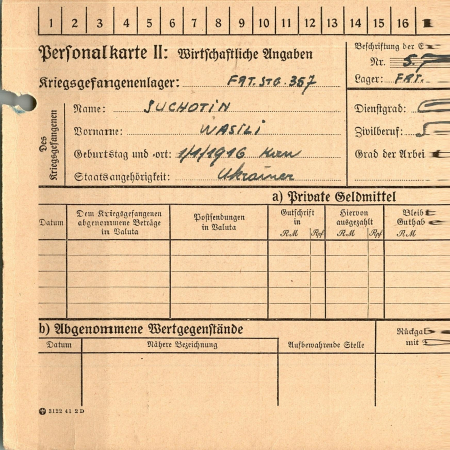 1 2 3 4 5 6 7 8 9 10 11 12 13 14 15 16
Personalkarte II: Wirtschaftliche Angaben
Beschriftung der E
Kriegsgefangenenlager: FRT. STG. 367
Nr. 
Lager: FRT.
Des Kriegsgefangenen
Name: SUCHOTIN
Vorname: WASILI
Geburtstag und -ort: 1/1/1916 Kiew
Staatsangehörigkeit: Ukrainer
Dienstgrad:
Zivilberuf:
Grad der Arbei
a) Private Geldmittel
Datum
Dem Kriegsgefangenen abgenommene Beträge in Valuta
Postsendungen in Valuta
Gutschrift in
RM Rpf
Hiervon ausgezahlt
RM Rpf
Bleib
Guthab
RM
b) Abgenommene Wertgegenstände
Datum
Nähere Bezeichnung
Aufbewahrende Stelle
Rückgal
mit
3122 41 2 D